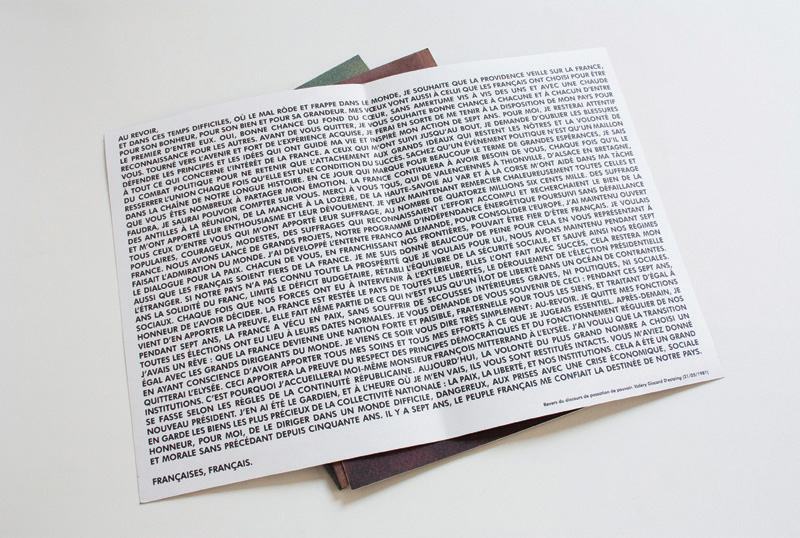 AU REVOIR.
ET DANS CES TEMPS DIFFICILES, OÙ LE MAL RÔDE ET FRAPPE DANS LE MONDE, JE SOUHAITE QUE LA PROVIDENCE VEILLE SUR LA FRANCE,
POUR SON BONHEUR, POUR SON BIEN ET POUR SA GRANDEUR. MES VŒUX VONT AUSSI À CELUI QUE LES FRANÇAIS ONT CHOISI POUR ÊTRE
LE PREMIER D'ENTRE EUX. OUI, BONNE CHANCE DU FOND DU CŒUR, SANS AMERTUME VIS À VIS DES UNS ET AVEC UNE CHAUDE
RECONNAISSANCE POUR LES AUTRES. AVANT DE VOUS QUITTER, JE VOUS SOUHAITE BONNE CHANCE À CHACUNE ET À CHACUN D'ENTRE
VOUS. TOURNÉ VERS L'AVENIR ET FORT DE L'EXPÉRIENCE ACQUISE, JE FERAI EN SORTE DE ME TENIR À LA DISPOSITION DE MON PAYS POUR
DÉFENDRE LES PRINCIPES ET LES IDÉES QUI ONT GUIDÉ MA VIE ET INSPIRÉ MON ACTION DE SEPT ANS. POUR MOI, JE RESTERAI ATTENTIF
À TOUT CE QUI CONCERNE L'INTÉRÊT DE LA FRANCE. A CEUX QUI M'ONT SUIVI JUSQU'AU BOUT, JE DEMANDE D'OUBLIER LES BLESSURES
DU COMBAT POLITIQUE, POUR NE RETENIR QUE L'ATTACHEMENT AUX GRANDS IDÉAUX QUI RESTENT LES NÔTRES ET LA VOLONTÉ DE
RESSERRER L'UNION CHAQUE FOIS QU'ELLE EST UNE CONDITION DU SUCCÈS. SACHEZ QU'UN ÉVÉNEMENT POLITIQUE N'EST QU'UN MAILLON
DANS LA CHAÎNE DE NOTRE LONGUE HISTOIRE. EN CE JOUR QUI MARQUE POUR BEAUCOUP LE TERME DE GRANDES ESPÉRANCES, JE SAIS
QUE VOUS ÊTES NOMBREUX À PARTAGER MON ÉMOTION. LA FRANCE CONTINUERA À AVOIR BESOIN DE VOUS, CHAQUE FOIS QU'IL LE
FAUDRA, JE SAURAI POUVOIR COMPTER SUR VOUS. MERCI À VOUS TOUS, QUI, DE VALENCIENNES À THIONVILLE, D'ALSACE EN BRETAGNE,
DES ANTILLES À LA RÉUNION, DE LA MANCHE À LA LOZÈRE, DE LA HAUTE-SAVOIE AU VAR ET À LA CORSE M'ONT AIDÉ DANS MA TÂCHE
ET M'ONT APPORTÉ LEUR ENTHOUSIASME ET LEUR DÉVOUEMENT. JE VEUX MAINTENANT REMERCIER CHALEUREUSEMENT TOUTES CELLES ET
TOUS CEUX D'ENTRE VOUS QUI M'ONT APPORTÉ LEUR SUFFRAGE, AU NOMBRE DE QUATORZE MILLIONS SIX CENTS MILLE. DES SUFFRAGES
POPULAIRES, COURAGEUX, MODESTES, DES SUFFRAGES QUI RECONNAISSAIENT L'EFFORT ACCOMPLI ET RECHERCHAIENT LE BIEN DE LA
FRANCE. NOUS AVONS LANCÉ DE GRANDS PROJETS, NOTRE PROGRAMME D'INDÉPENDANCE ÉNERGÉTIQUE POURSUIVI SANS DÉFAILLANCE
FAISAIT L'ADMIRATION DU MONDE. J'AI DÉVELOPPÉ L'ENTENTE FRANCO ALLEMANDE, POUR CONSOLIDER L'EUROPE. J'AI MAINTENU OUVERT
LE DIALOGUE POUR LA PAIX. CHACUN DE VOUS, EN FRANCHISSANT NOS FRONTIÈRES, POUVAIT ÊTRE FIER D'ÊTRE FRANÇAIS. JE VOULAIS
AUSSI QUE LES FRANÇAIS SOIENT FIERS DE LA FRANCE. JE ME SUIS DONNÉ BEAUCOUP DE PEINE POUR CELA EN VOUS REPRÉSENTANT À
L'ÉTRANGER. SI NOTRE PAYS N'A PAS CONNU TOUTE LA PROSPÉRITÉ QUE JE VOULAIS POUR LUI, NOUS AVONS MAINTENU PENDANT SEPT
ANS LA SOLIDITÉ DU FRANC, LIMITÉ LE DÉFICIT BUDGÉTAIRE, RÉTABLI L'ÉQUILIBRE DE LA SÉCURITÉ SOCIALE, ET SAUVÉ AINSI NOS RÉGIMES
SOCIAUX. CHAQUE FOIS QUE NOS FORCES ONT EU À INTERVENIR À L'EXTÉRIEUR, ELLES L'ONT FAIT AVEC SUCCÈS, CELA RESTERA MON
HONNEUR DE L'AVOIR DÉCIDÉ. LA FRANCE EST RESTÉE LE PAYS DE TOUTES LES LIBERTÉS, LE DÉROULEMENT DE L'ÉLECTION PRÉSIDENTIELLE
VIENT D'EN APPORTER LA PREUVE, ELLE FAIT MÊME PARTIE DE CE QUI N'EST PLUS QU'UN ÎLOT DE LIBERTÉ DANS UN OCÉAN DE CONTRAINTES.
PENDANT SEPT ANS, LA FRANCE A VÉCU EN PAIX, SANS SOUFFRIR DE SECOUSSES INTÉRIEURES GRAVES, NI POLITIQUES, NI SOCIALES.
TOUTES LES ÉLECTIONS ONT EU LIEU À LEURS DATES NORMALES. JE VOUS DEMANDE DE VOUS SOUVENIR DE CECI : PENDANT CES SEPT ANS,
J'AVAIS UN RÊVE : QUE LA FRANCE DEVIENNE UNE NATION FORTE ET PAISIBLE, FRATERNELLE POUR TOUS LES SIENS, ET TRAITANT D'ÉGAL À
ÉGAL AVEC LES GRANDS DIRIGEANTS DU MONDE. JE VIENS CE SOIR VOUS DIRE TRÈS SIMPLEMENT : AU-REVOIR. JE QUITTE MES FONCTIONS
EN AYANT CONSCIENCE D'AVOIR APPORTÉ TOUS MES SOINS ET TOUS MES EFFORTS À CE QUE JE JUGEAIS ESSENTIEL. APRÈS-DEMAIN, JE
QUITTERAI L'ELYSÉE. CECI APPORTERA LA PREUVE DU RESPECT DES PRINCIPES DÉMOCRATIQUES ET DU FONCTIONNEMENT RÉGULIER DE NOS
INSTITUTIONS. C'EST POURQUOI J'ACCUEILLERAI MOI-MÊME MONSIEUR FRANÇOIS MITTERRAND À L'ELYSÉE. J'AI VOULU QUE LA TRANSITION
SE FASSE SELON LES RÈGLES DE LA CONTINUITÉ RÉPUBLICAINE. AUJOURD'HUI, LA VOLONTÉ DU PLUS GRAND NOMBRE A CHOISI UN
NOUVEAU PRÉSIDENT. J'EN AI ÉTÉ LE GARDIEN, ET À L'HEURE OÙ JE M'EN VAIS, ILS VOUS SONT RESTITUÉS INTACTS. VOUS M'AVIEZ DONNÉ
EN GARDE LES BIENS LES PLUS PRÉCIEUX DE LA COLLECTIVITÉ NATIONALE : LA PAIX, LA LIBERTÉ, ET NOS INSTITUTIONS. CELA A ÉTÉ UN GRAND
HONNEUR, POUR MOI, DE LE DIRIGER DANS UN MONDE DIFFICILE, DANGEREUX, AUX PRISES AVEC UNE CRISE ÉCONOMIQUE, SOCIALE
ET MORALE SANS PRÉCÉDANT DEPUIS CINQUANTE ANS. IL Y A SEPT ANS, LE PEUPLE FRANÇAIS ME CONFIAIT LA DESTINÉE DE NOTRE PAYS.
FRANÇAISES, FRANÇAIS.
Revers du discours de passation de pouvoir. Valéry Giscard D'estaing (21/05/1981)